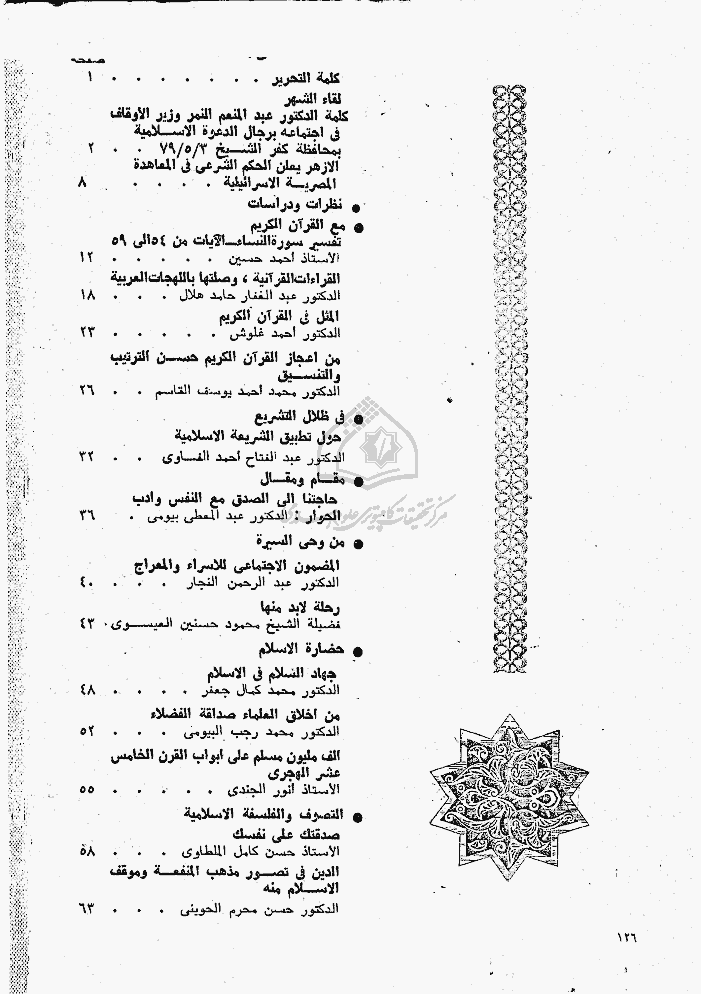 صفحة
كلمة التحرير . . . . . . . ١
لقاء الشهر
كلمة الدكتور عبد المنعم النمر وزير الأوقاف
فى اجتماعه برجال الدعوة الاسـلامية
بمحافظة كفر الشـيخ ٧٩/٥/٣ . . ٢
الازهر يعلن الحكم الشرعى فى المعاهدة
المصريـة الاسرائيلية . . . . ٨
● نظرات ودراسات
● مع القرآن الكريم
تفسير سورة النساء ـ الآيات من ٥٤ الى ٥٩
الأستاذ أحمد حسين . . . . . ١٢
القراءات القرآنية ، وصلتها باللهجات العربية
الدكتور عبد الغفار حامد هلال . . . ١٨
المثل فى القرآن الكريم
الدكتور أحمد غلوش . . . . . ٢٣
من اعجاز القرآن الكريم حسـن الترتيب
والتنسـيق
الدكتور محمد أحمد يوسف القاسم . . ٢٦
● فى ظلال التشريع
حول تطبيق الشريعة الاسلامية
الدكتور عبد الفتاح أحمد الفـاوى . . ٣٢
● مقـام ومقـال
حاجتنا الى الصدق مع النفس وأدب
الحوار : الدكتور عبد المعطى بيومى . ٣٦
مركز تحقيقات كامپيوترى علوم اسلامى
● من وحى السيرة
المضمون الاجتماعى للاسراء والمعراج
الدكتور عبد الرحمن النجار . . . ٤٠
رحلة لابد منها
فضيلة الشيخ محمود حسنين العيسـوى . ٤٣
● حضارة الاسلام
جهاد السلام فى الاسلام
الدكتور محمد كمال جعفر . . . . ٤٨
من أخلاق العلماء صداقة الفضلاء
الدكتور محمد رجب البيومى . . . ٥٢
ألف مليون مسلم على أبواب القرن الخامس
عشر الهجرى
الأستاذ أنور الجندى . . . . . ٥٥
● التصوف والفلسفة الاسلامية
صدقتك على نفسك
الأستاذ حسن كامل الملطاوى . . . ٥٨
الدين فى تصـور مذهب المنفعـة وموقف
الاسـلام منه
الدكتور حسن محرم الحوينى . . . ٦٣
١٢٦